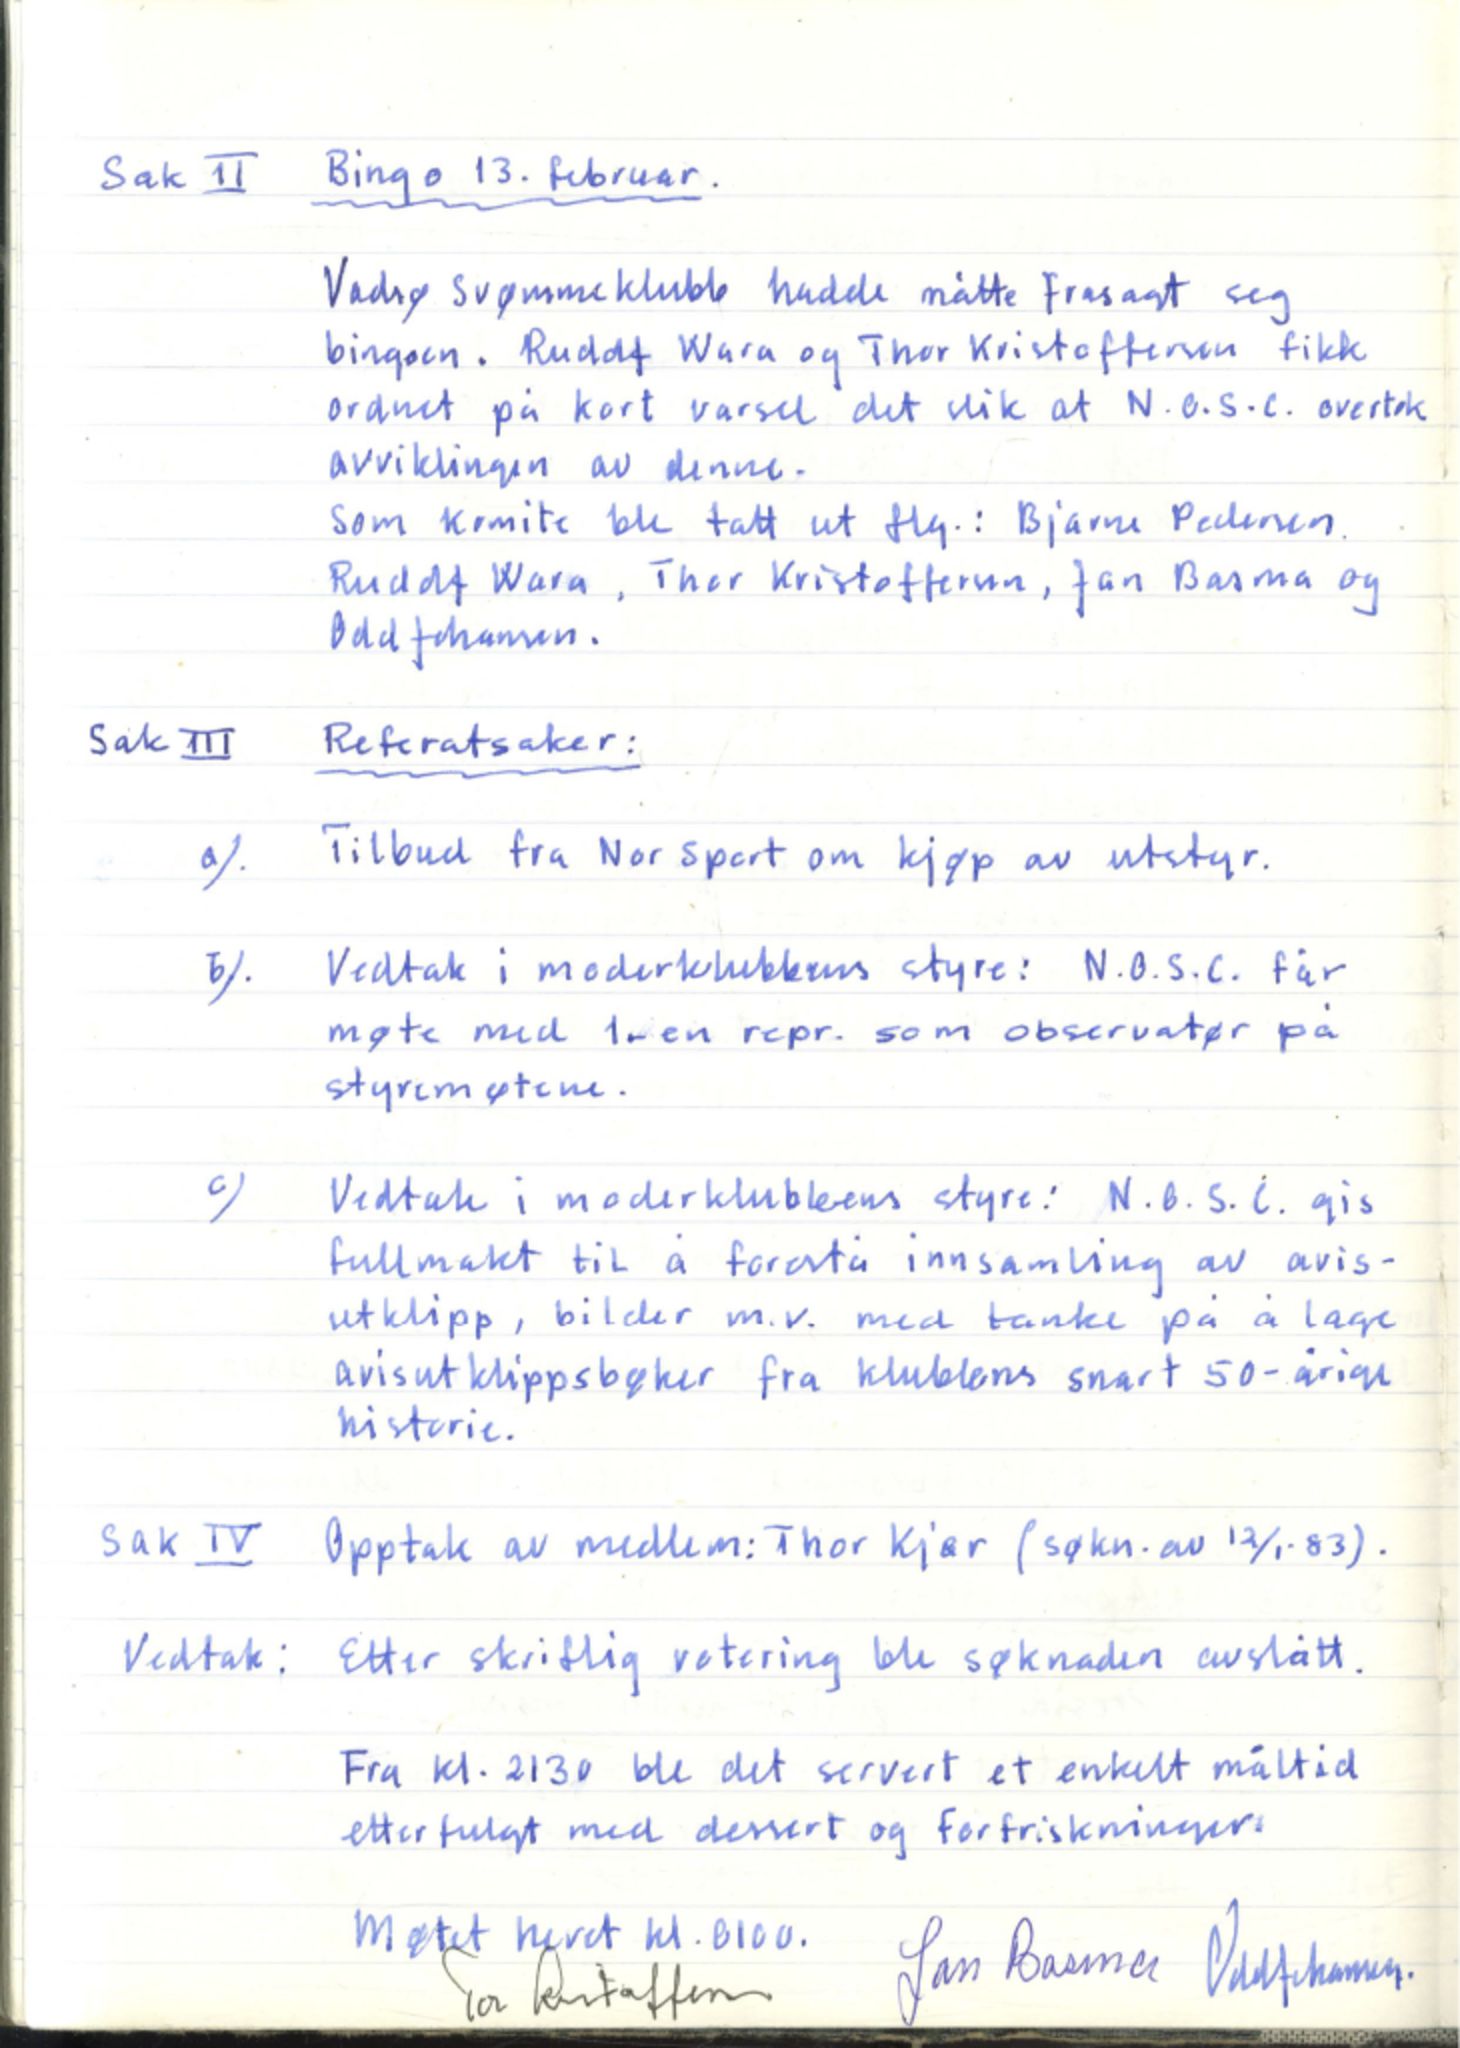 Sak II Bingo 13. februar.
Vadsø Svømmeklubb hadde måtte frasagt seg
bingoen. Rudolf Wara og Thor Kristoffersen fikk
ordnet på kort varsel det slik at N.O.S.C. overtok
avviklingen av denne.
Som komite ble tatt ut flg.: Bjarne Pedersen.
Rudolf Wara, Thor Kristoffersen, Jan Basma og
Odd Johansen.
Sak III Referatsaker:
a). Tilbud fra Nor Sport om kjøp av utstyr.
b). Vedtak i moderklubbens styre: N.O.S.C. får
møte med 1-en repr. som observatør på
styremøtene.
c) Vedtak i moderklubbens styre: N.O.S.C. gis
fullmakt til å forestå innsamling av avis-
utklipp, bilder m.v. med tanke på å lage
avisutklippsbøker fra klubbens snart 50-årige
historie.
Sak IV Opptak av medlem: Thor Kjær (søkn. av 12/1-83).
Vedtak: Etter skriftlig votering ble søknaden avslått.
Fra kl. 2130 ble det servert et enkelt måltid
etterfulgt med dessert og forfriskninger.
Møtet hevet kl. 0100.
Tor Kristoffersen Jan Basma Odd Johansen.